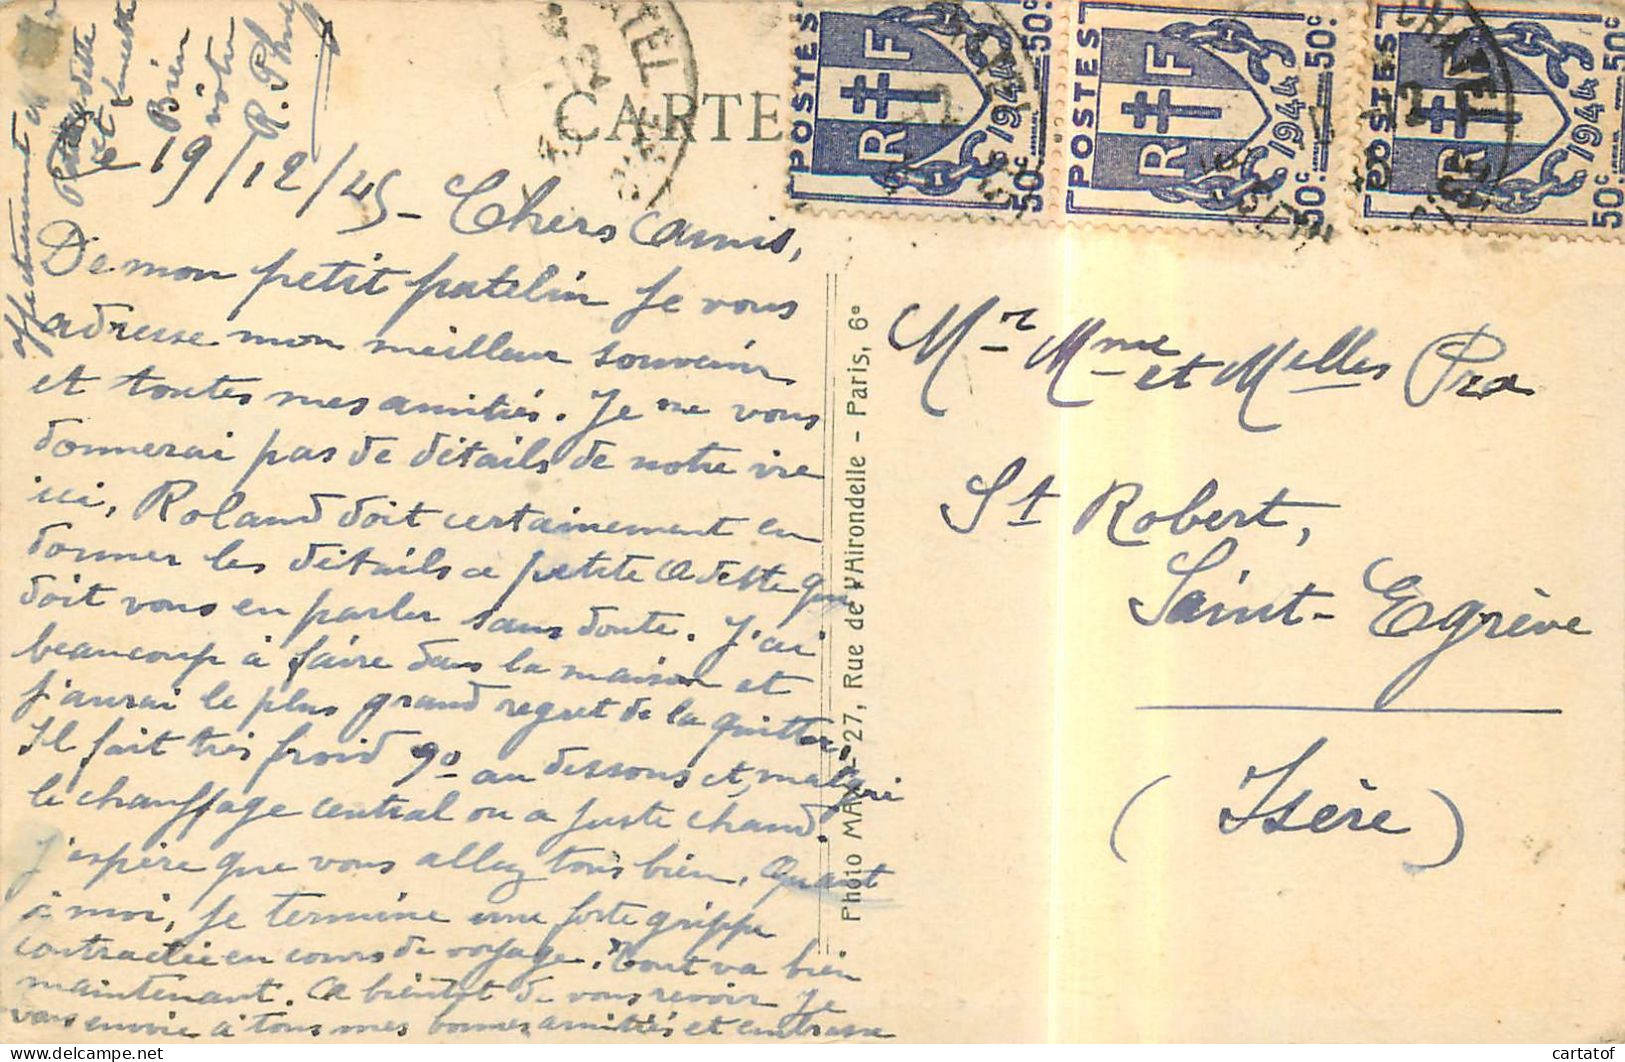 CARTE
POSTES RF 1944 50c 50c
POSTES RF 1944 50c 50c
POSTES RF 1944 50c 50c
le 19/12/45 - Chers Amis,
De mon petit patelin je vous
adresse mon meilleur souvenir
et toutes mes amitiés. Je ne vous
donnerai pas de détails de notre vie
ici, Roland doit certainement en
donner les détails a petite Odette qui
doit vous en parler sans doute. J'ai
beaucoup à faire dans la maison et
j'aurai le plus grand regret de la quitter.
Il fait très froid 9° au dessous et, malgré
le chauffage central on a juste chaud.
J'espère que vous allez tous bien. Quant
à moi, je termine une forte grippe
contractée en cours de voyage. Tout va bien
maintenant. A bientôt de vous revoir Je
vous envie à tous mes bonnes amitiés et embrasse
affectueusement
Odette et
Bien
votre
R.
Photo MAR - 27, Rue de l'Airondelle - Paris, 6e
Mr Mme et Melles Pra
St Robert,
Saint-Egrève
(Isère)
cartatof